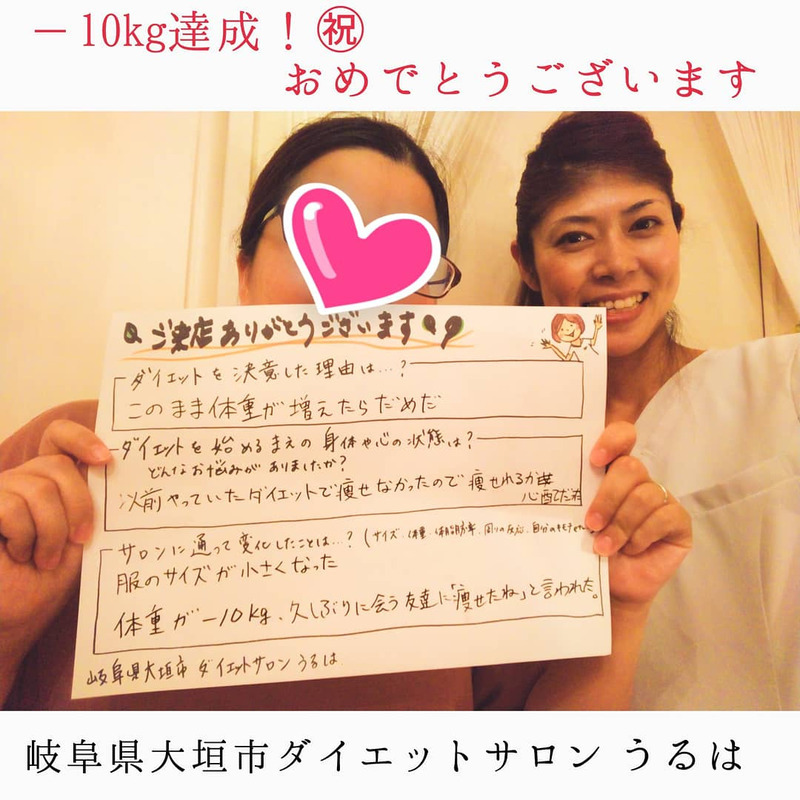 －10kg達成！㊗
おめでとうございます
ご来店ありがとうございます
ダイエットを決意した理由は…？
このまま体重が増えたらだめだ
ダイエットを始めるまえの身体や心の状態は？
どんなお悩みがありましたか？
以前やっていたダイエットで痩せなかったので痩せれるか
心配でだった
サロンに通って変化したことは…？（サイズ、体重、体脂肪率、周りの反応、自分のキモチ
服のサイズが小さくなった
体重が－10kg、久しぶりに会う友達に「痩せたね」と言われた。
岐阜県大垣市 ダイエットサロン うるは
岐阜県大垣市ダイエットサロン うるは